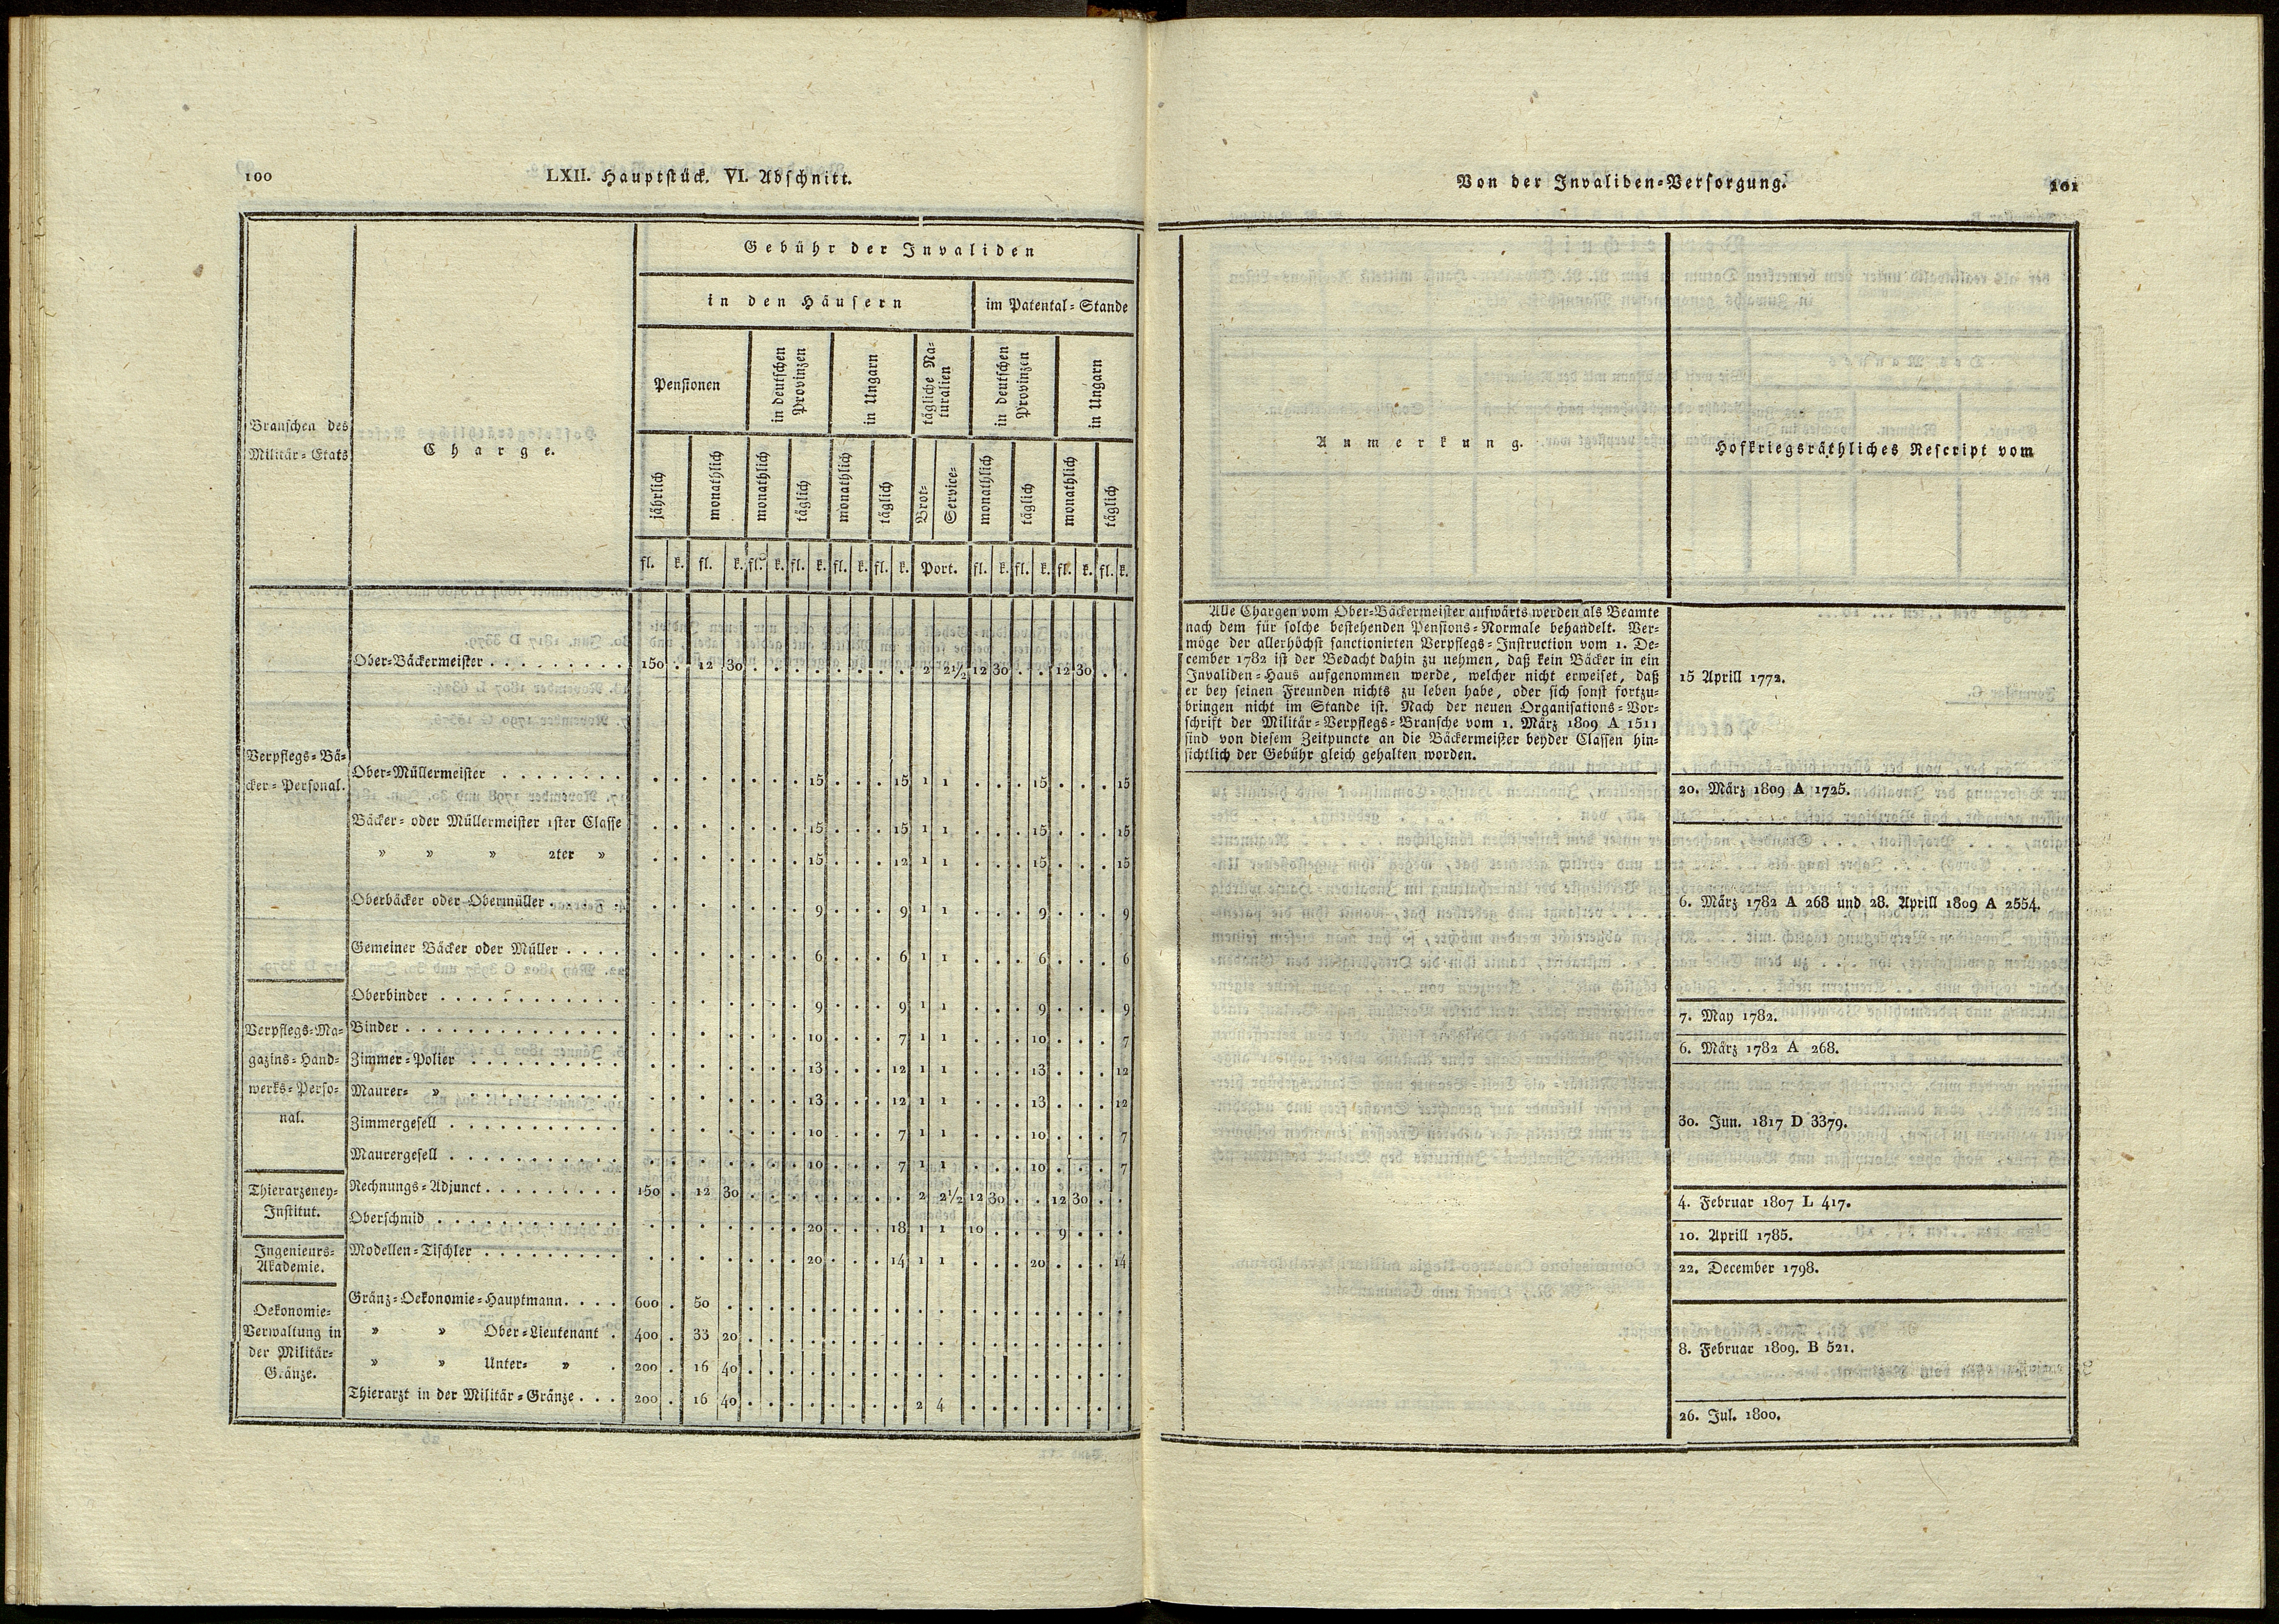 100
LXII. Hauptstück. VI. Abschnitt.
Branschen des
Militär-Etats
Charge.
Gebühr der Invaliden
in den Häusern
im Patental-Stande
Pensionen
in deutschen Provinzen
in Ungarn
tägliche Naturalien
in deutschen Provinzen
in Ungarn
jährlich
monathlich
monathlich
täglich
monathlich
täglich
Brot-
Service-
monathlich
täglich
monathlich
täglich
fl. k. fl. k. fl. k. fl. k. fl. k. fl. k. Port. fl. k. fl. k. fl. k. fl. k.
Verpflegs-Bä-
cker-Personal.
Ober-Bäckermeister . . . . . . . . . 150 . 12 30 . . . . . . . . 2 2½ 12 30 . . 12 30 . .
Ober-Müllermeister . . . . . . . . . . . . . . . 15 . . . 15 1 1 . . . 15 . . . 15
Bäcker- oder Müllermeister 1ster Classe . . . . . . . 15 . . . 15 1 1 . . . 15 . . . 15
» » » 2ter » . . . . . . . 15 . . . 12 1 1 . . . 15 . . . 15
Oberbäcker oder Obermüller . . . . . . . . . . . 9 . . . 9 1 1 . . . 9 . . . 9
Gemeiner Bäcker oder Müller . . . . . . . . . . . 6 . . . 6 1 1 . . . 6 . . . 6
Verpflegs-Ma-
gazins-Hand-
werks-Perso-
nal.
Oberbinder . . . . . . . . . . . . . . . . . . . 9 . . . 9 1 1 . . . 9 . . . 9
Binder . . . . . . . . . . . . . . . . . . . . . 10 . . . 7 1 1 . . . 10 . . . 7
Zimmer-Polier . . . . . . . . . . . . . . . . . 13 . . . 12 1 1 . . . 13 . . . 12
Maurer- » . . . . . . . . . . . . . . . . . 13 . . . 12 1 1 . . . 13 . . . 12
Zimmergesell . . . . . . . . . . . . . . . . . . 10 . . . 7 1 1 . . . 10 . . . 7
Maurergesell . . . . . . . . . . . . . . . . . . 10 . . . 7 1 1 . . . 10 . . . 7
Thierarzeney-
Institut.
Rechnungs-Adjunct . . . . . . . . . 150 . 12 30 . . . . . . . . 2 2½ 12 30 . . 12 30 . .
Oberschmid . . . . . . . . . . . . . . . . . . . 20 . . . 18 1 1 10 . . . 9 . . .
Ingenieurs-
Akademie.
Modellen-Tischler . . . . . . . . . . . . . . . . 20 . . . 14 1 1 . . . 20 . . . 14
Oekonomie-
Verwaltung in
der Militär-
Gränze.
Gränz-Oekonomie-Hauptmann . . . . 600 . 50 . . . . . . . . . . . . . . . . . . .
» » Ober-Lieutenant . 400 . 33 20 . . . . . . . . . . . . . . . . . .
» » Unter- » . 200 . 16 40 . . . . . . . . . . . . . . . . . .
Thierarzt in der Militär-Gränze . . . 200 . 16 40 . . . . . . . . 2 4 . . . . . . . .
Von der Invaliden-Versorgung.
101
Anmerkung.
Hofkriegsräthliches Rescript vom
Alle Chargen vom Ober-Bäckermeister aufwärts werden als Beamte
nach dem für solche bestehenden Pensions-Normale behandelt. Ver-
möge der allerhöchst sanctionirten Verpflegs-Instruction vom 1. De-
cember 1782 ist der Bedacht dahin zu nehmen, daß kein Bäcker in ein
Invaliden-Haus aufgenommen werde, welcher nicht erweiset, daß
er bey seinen Freunden nichts zu leben habe, oder sich sonst fortzu-
bringen nicht im Stande ist. Nach der neuen Organisations-Vor-
schrift der Militär-Verpflegs-Bransche vom 1. März 1809 A 1511
sind von diesem Zeitpuncte an die Bäckermeister beyder Classen hin-
sichtlich der Gebühr gleich gehalten worden.
15 Aprill 1772.
20. März 1809 A 1725.
6. März 1782 A 268 und 28. Aprill 1809 A 2554.
7. May 1782.
6. März 1782 A 268.
30. Jun. 1817 D 3379.
4. Februar 1807 L 417.
10. Aprill 1785.
22. December 1798.
8. Februar 1809. B 521.
26. Jul. 1800.